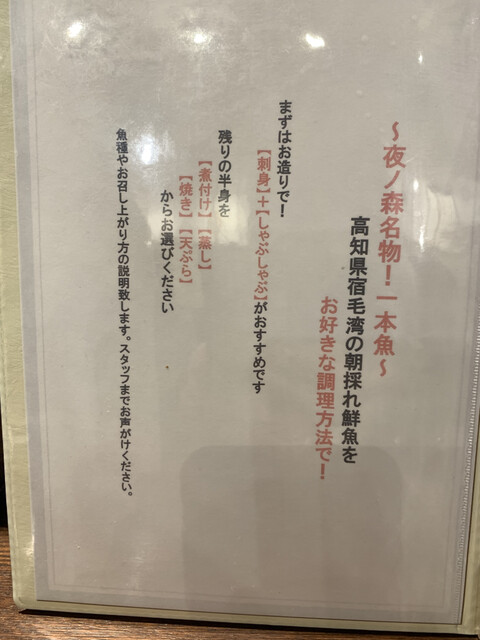 ～夜ノ森名物！一本魚～
高知県宿毛湾の朝採れ鮮魚を
お好きな調理方法で！
まずはお造りで！
【刺身】＋【しゃぶしゃぶ】がおすすめです
残りの半身を
【煮付け】【蒸し】
【焼き】【天ぷら】
からお選びください
魚種やお召し上がり方の説明致します。スタッフまでお声がけください。